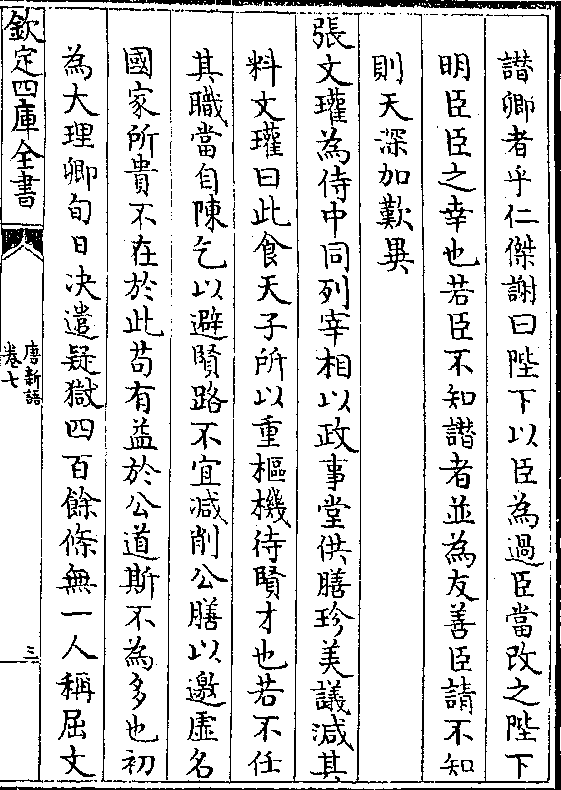 譖卿者乎仁傑謝曰陛下以臣為過臣當改之陛下
明臣臣之幸也若臣不知譖者並為友善臣請不知
則天深加歎異
張文瓘為侍中同列宰相以政事堂供膳珍美議減其
料文瓘曰此食天子所以重樞機待賢才也若不任
其職當自陳乞以避賢路不宜减削公膳以邀虛名
國家所貴不在於此苟有益於公道斯不為多也初
為大理卿旬日决遣疑獄四百餘條無一人稱屈文
欽定四庫全書
唐新語
卷七
三